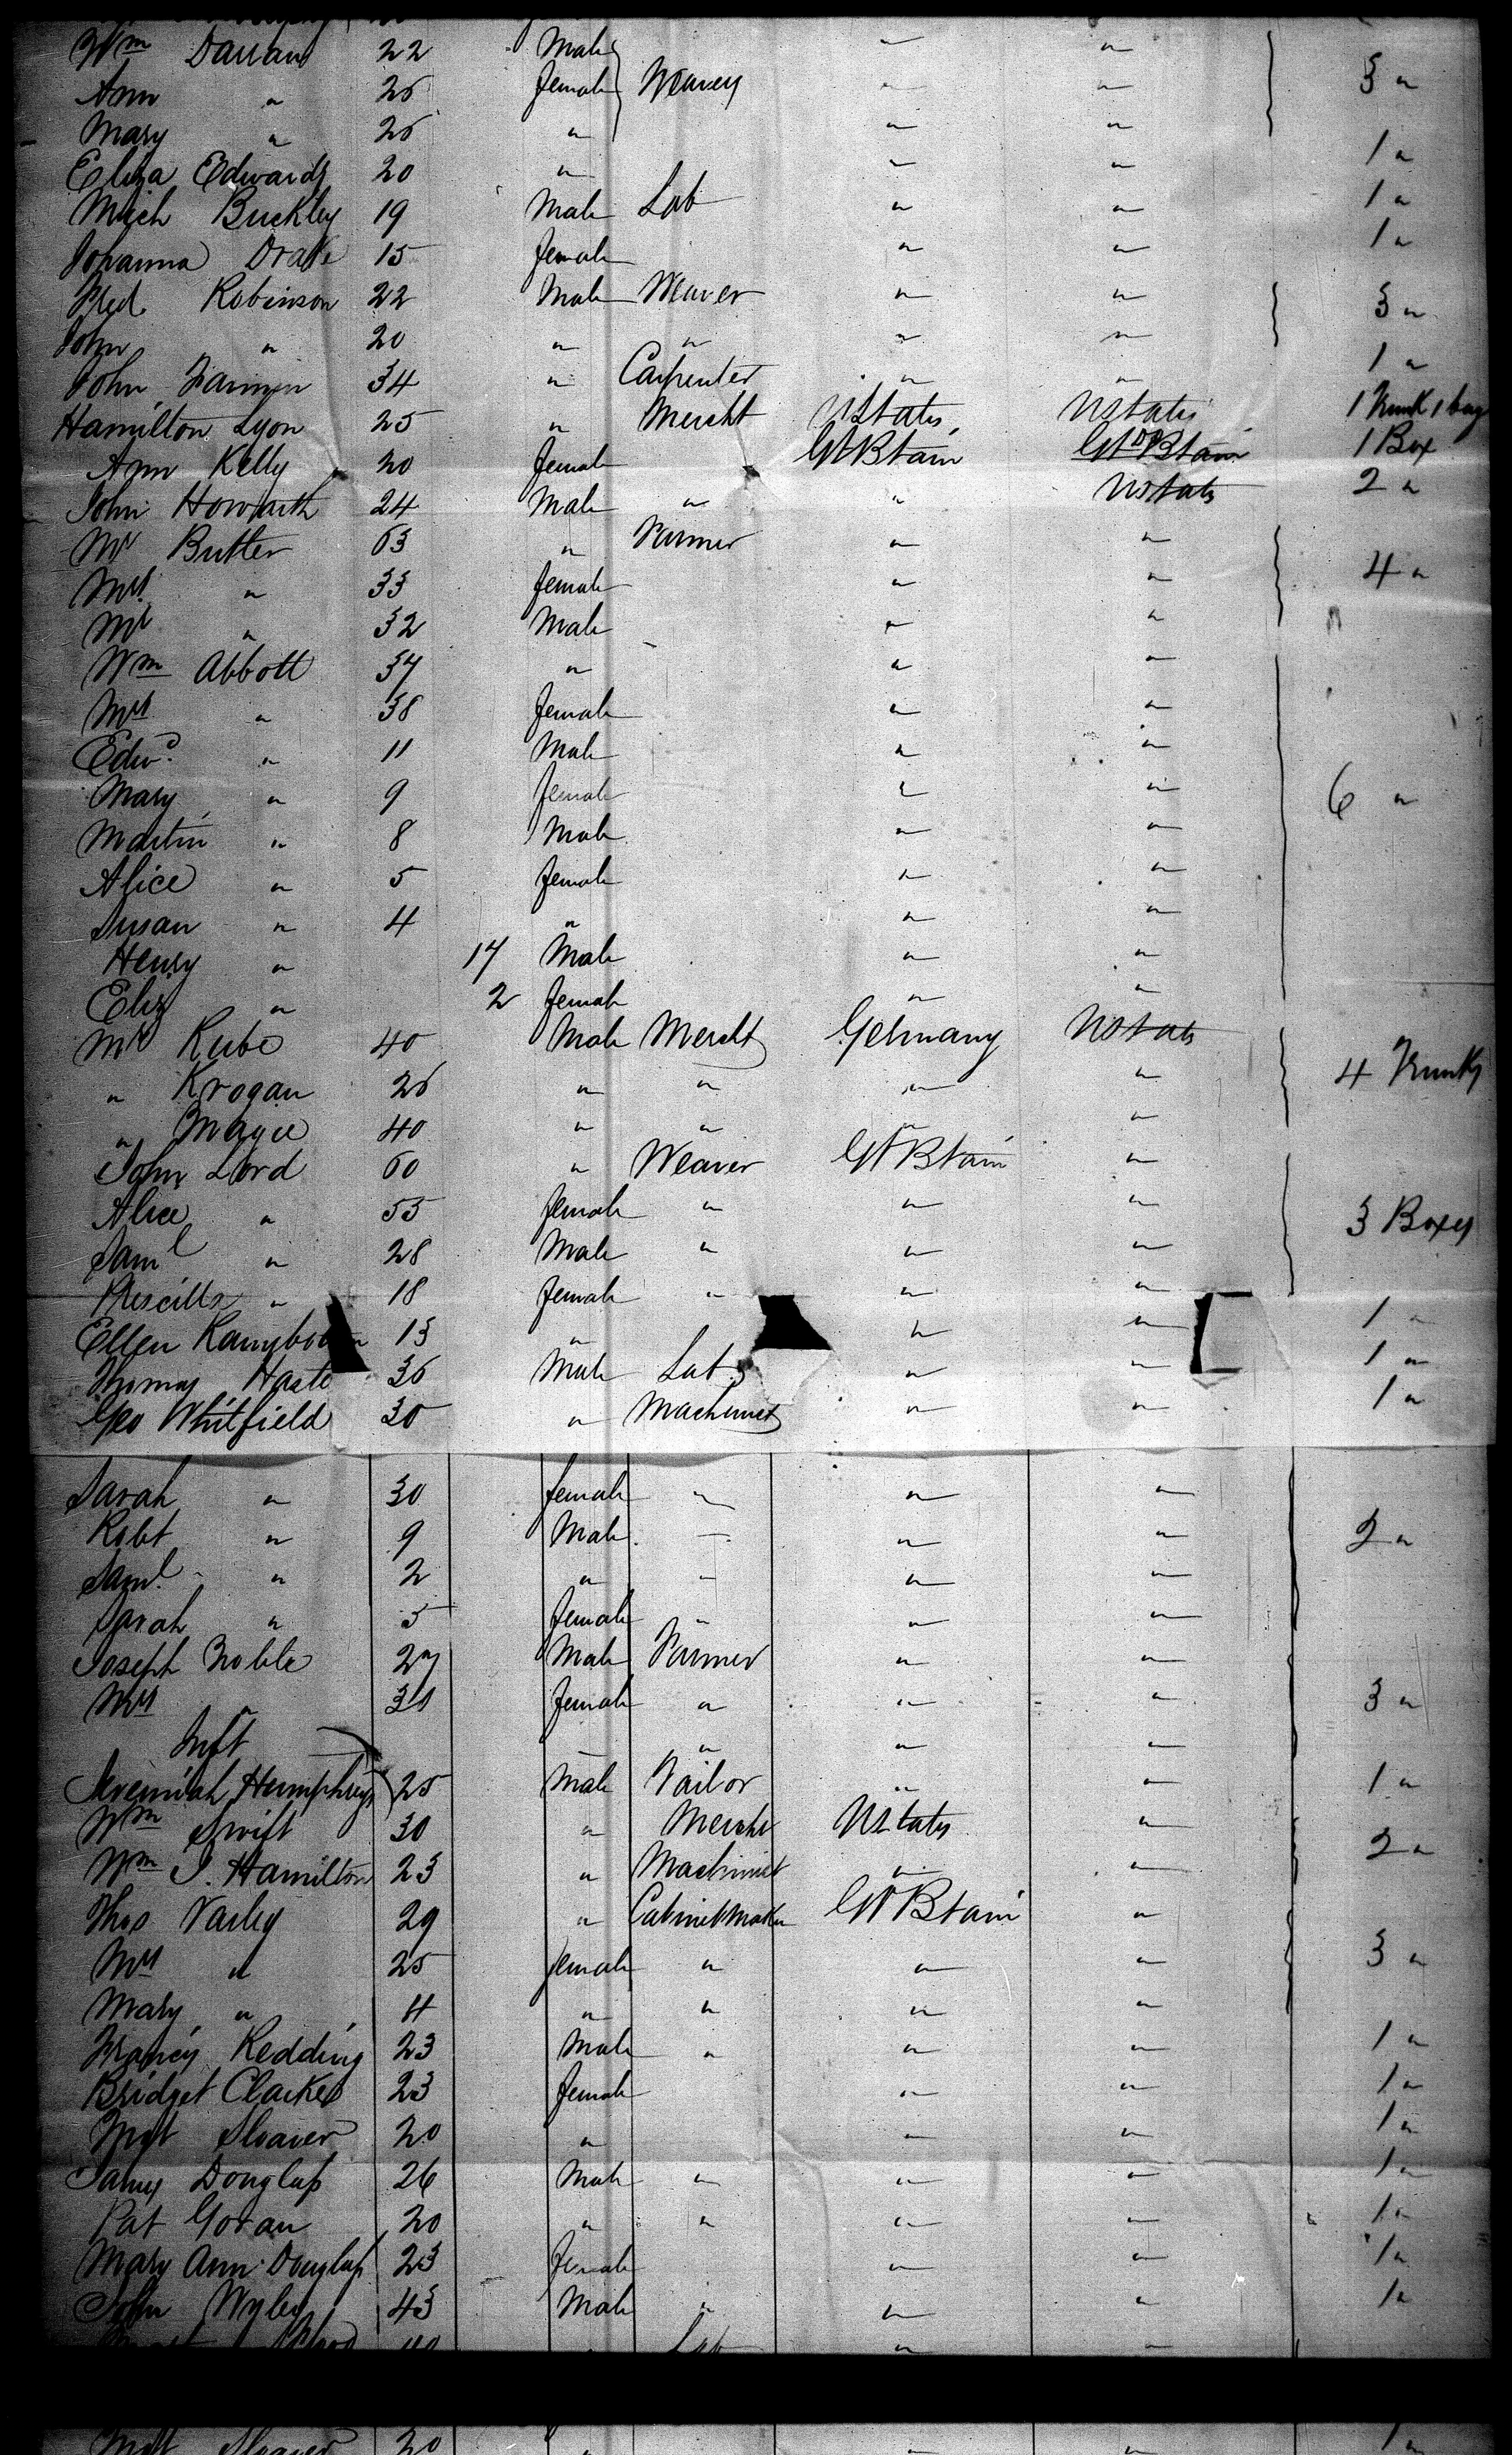 Wm Darran 22 Male Weavers " " 3 "
Ann " 26 female " "
Mary " 26 " " "
Eliza Edwards 20 " " " 1 "
Mich Buckley 19 Male Lab " " 1 "
Johanna Drake 15 female " " 1 "
Fred. Robinson 22 Male Weaver " " 3 "
John " 20 " " " "
John 34 " Carpenter " " 1 "
Hamilton Lyon 25 " Mercht UStates UStates 1 Trunk 1 bag
Ann Kelly 20 female Gt Btain Gt Btain 1 Box
John Howarth 24 Male " " UStates 2 "
Mr Butler 63 " Farmer " " 4 "
Mrs " 33 female " "
Mr " 32 Male " "
Wm Abbott 37 " " "
Mrs " 38 female " "
Edwd " 11 Male " "
Mary " 9 female " " 6 "
Martin " 8 Male " "
Alice " 5 female " "
Susan " 4 " " "
Henry " 17 Male " "
Eliz " 2 female " "
Mr Kube 40 Male Mercht Germany UStates
" Krogan 26 " " " " 4 Trunks
" Magee 40 " " " "
John Lord 60 " Weaver Gt Btain "
Alice " 55 female " " " 3 Boxes
Saml " 28 Male " " "
Priscilla " 18 female " " "
Ellen 13 " " " 1 "
Thomas Haste 36 Male Lab " " 1 "
Geo Whitfield 30 " Machinest " " 1 "
Sarah " 30 female " " "
Robt " 9 Male " " " 2 "
Saml " 2 " " " "
Sarah " 5 female " " "
Joseph Noble 27 Male Farmer " "
Mrs " 31 female " " " 3 "
Inft " " "
Jeremiah Humphreys 25 Male Tailor " " 1 "
Wm Swift 30 " Mercht UStates "
Wm J. Hamilton 23 " Machinist " " 2 "
Thos Varley 29 " Cabinetmaker Gt Btain "
Mrs " 25 female " " " 3 "
Mary " 4 " " " "
Francis Redding 23 Male " " " 1 "
Bridget Clarke 23 female " " 1 "
Mgt Sloaver 20 " " " 1 "
James Douglass 26 Male " " " 1 "
Pat Goran 20 " " " " 1 "
Mary Ann Douglass 23 female " " 1 "
John Wyley 43 Male " " " 1 "
40 " Lab " "
Mgt Sloaver 20 " " " 1 "